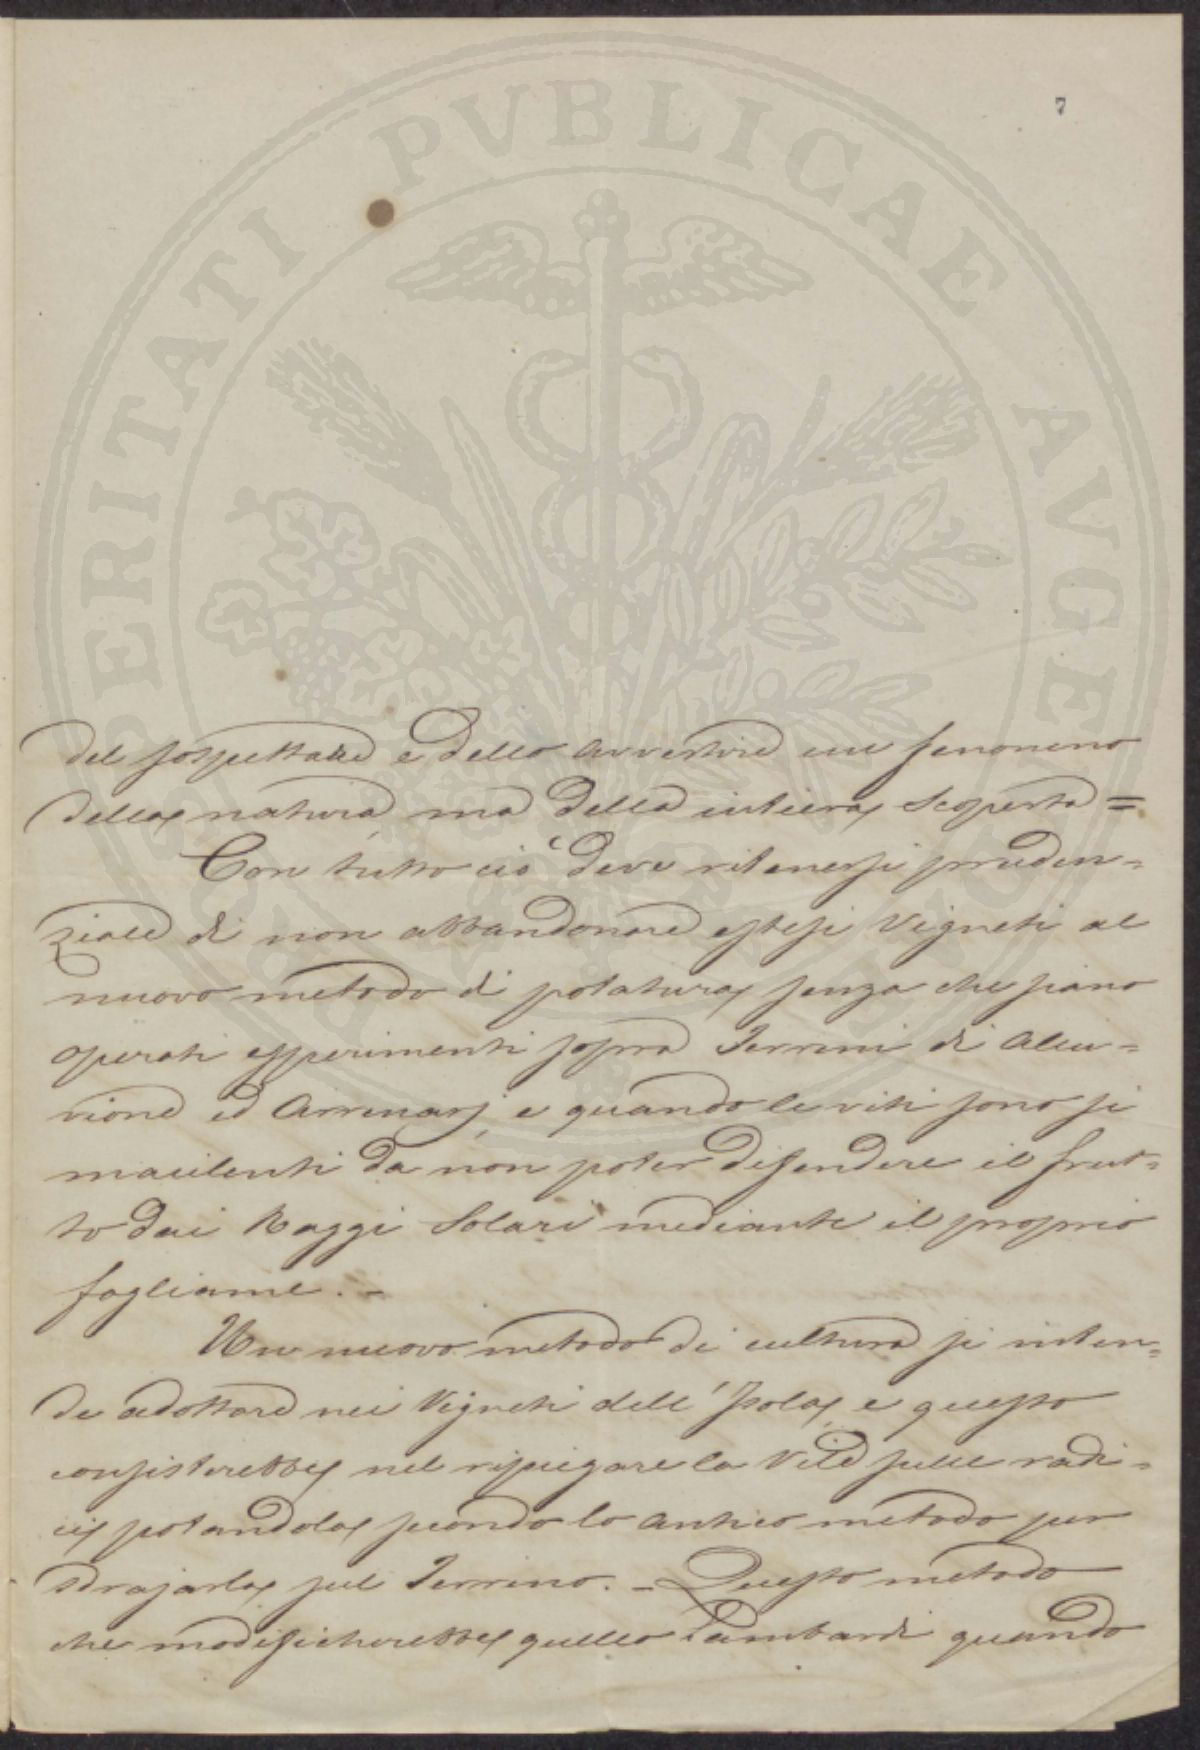 7
del sospettare e dello avvertire un fenoneno
della natura ma della intiera Scoperta =
Con tutto ciò deve ritenersi pruden=
ziale di non abbandonare estesi Vigneti al
nuovo metodo di potatura senza che siano
operati esperimenti sopra Terreni di Allu=
vione ed Arrenarj, e quando le viti sono sì
macilenti da non poter difendere il frut=
to dai Raggi Solari mediante il proprio
fogliame. -
Un nuovo metodo di cultura si inten=
de adottare nei Vigneti dell'Isola, e questo
consisterebbe nel ripiegare la Vite sulle radi=
ci, potandola secondo lo antico metodo per
sdrajarla sul Terreno. - Questo metodo
che modificherebbe quello Lambardi quando
PROSPERITATI PVBLICAE AVGENDAE